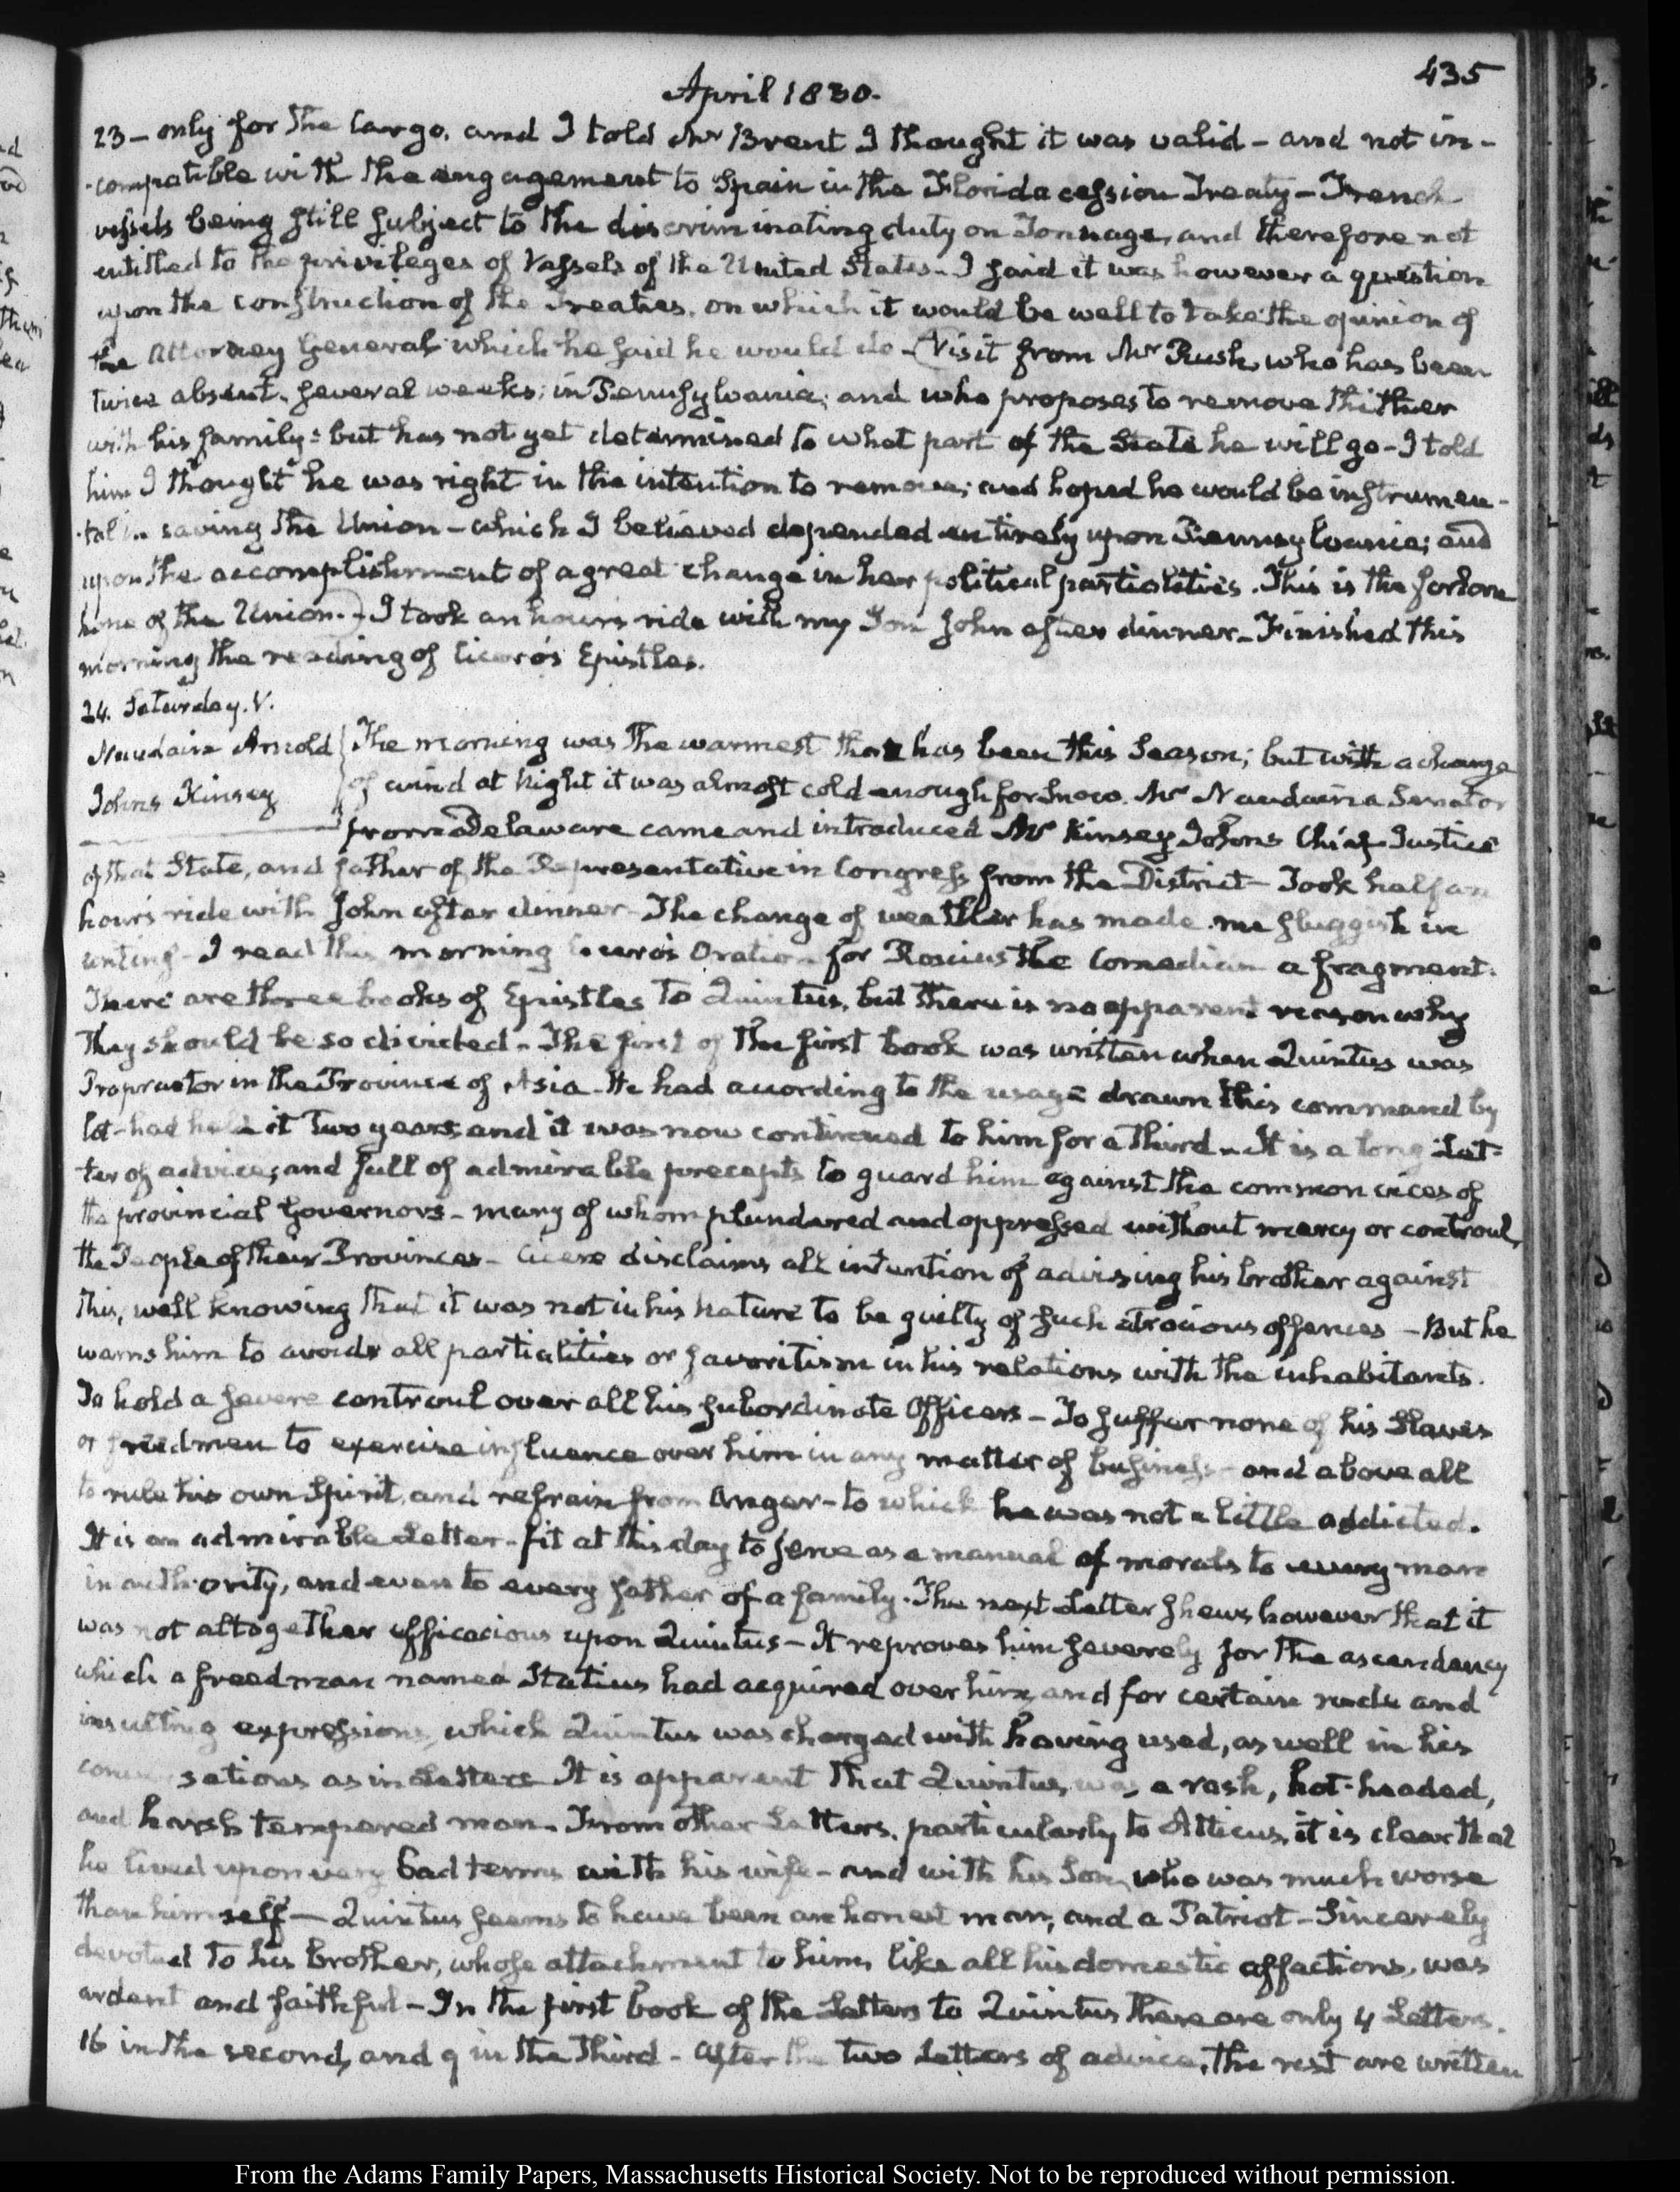 435
April 1830.
23 – only for the Cargo. and I told Mr Brent I thought it was valid – and not in-
-compatible with the engagement to Spain in the Florida cession Treaty – French
vessels being still subject to the discriminating duty on Tonnage, and therefore not
entitled to the privileges of Vessels of the United States – I said it was however a question
upon the construction of the Treaties. on which it would be well to take the opinion of
the Attorney General which he said he would do – (Visit from Mr Rush, who has been
twice absent, several weeks; in Pennsylvania; and who proposes to remove thither
with his family: but has not yet determined to what part of the State he will go – I told
him I thought he was right in the intention to remove; and hoped he would be instrumen-
-tal in saving the Union – which I believed depended entirely upon Pennsylvania; and
upon the accomplishment of a great change in her political partialities. This is the forlorn
hope of the Union.) – I took an hour's ride with my Son John after dinner – Finished this
morning the reading of Cicero's Epistles.
24. Saturday. V.
Naudain Arnold
Johns Kinsey
The morning was the warmest that has been this Season; but with a change
of wind at Night it was almost cold enough for Snow. Mr Naudain a Senator
from Delaware came and introduced Mr Kinsey Johns Chief Justice
of that State, and father of the Representative in Congress from the District – Took half an
hour's ride with John after dinner – The change of weather has made me sluggish in
writing – I read this morning Cicero's Oration for Roscius the Comedian a fragment.
There are three books of Epistles to Quintus, but there is no apparent reason why
They should be so divided – The first of the first book was written when Quintus was
Propraetor in the Province of Asia – He had according to the usage drawn this command by
lot – had held it two years, and it was now continued to him for a third – It is a long Let-
ter of advice; and full of admirable precepts to guard him against the common vices of
the provincial Governors – many of whom plundered and oppressed without mercy or controul,
the People of their Provinces – Cicero disclaims all intention of advising his brother against
this, well knowing that it was not in his nature to be guilty of such atrocious offences – But he
warns him to avoid all partialities or favoritism in his relations with the inhabitants.
To hold a severe controul over all his subordinate Officers – To suffer none of his Slaves
or freedmen to exercise influence over him in any matter of business – and above all
to rule his own Spirit, and refrain from Anger – to which he was not a little addicted.
It is an admirable Letter – fit at this day to serve as a manual of morals to every man
in authority, and even to every father of a family. The next Letter shews however that it
was not altogether efficacious upon Quintus – It reproves him severely for the ascendency
which a freedman named Statius had acquired over him, and for certain rude and
insulting expressions, which Quintus was charged with having used, as well in his
conversations as in Letters It is apparent that Quintus, was a rash, hot-headed,
and harsh tempered man. From other Letters, particularly to Atticus, it is clear that
he lived upon very bad terms with his wife – and with his Son, who was much worse
than himself – Quintus seems to have been an honest man, and a Patriot – Sincerely
devoted to his brother, whose attachment to him, like all his domestic affections, was
ardent and faithful – In the first book of the Letters to Quintus there are only 4 Letters.
16 in the second, and 9 in the third – After the two Letters of advice, the rest are written
From the Adams Family Papers, Massachusetts Historical Society. Not to be reproduced without permission.